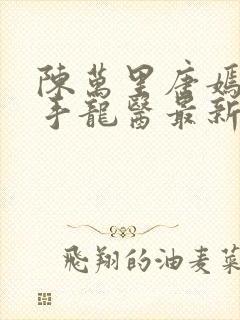 陳萬里唐嫣
手龍醫最新
飛翔的油麦菜